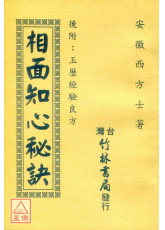 安徽西方士著
相面知心秘訣
後附：玉歷經驗良方
台灣竹林書局發行